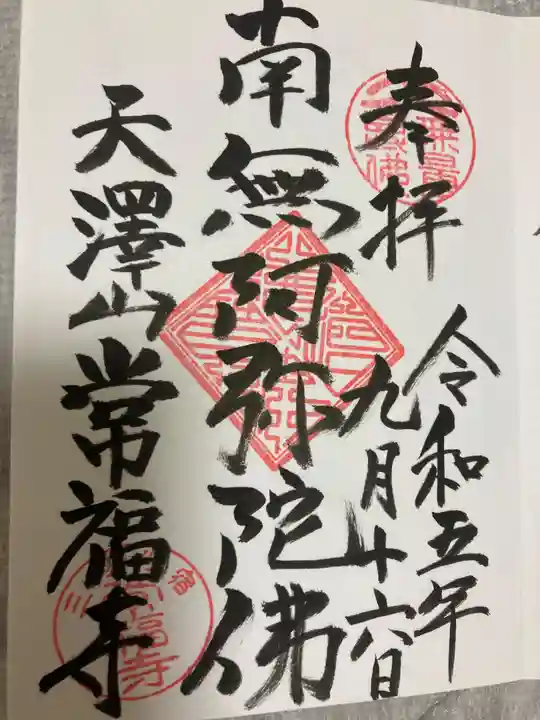 奉拝
令和五年
九月十六日
南無阿弥陀佛
天澤山常福寺